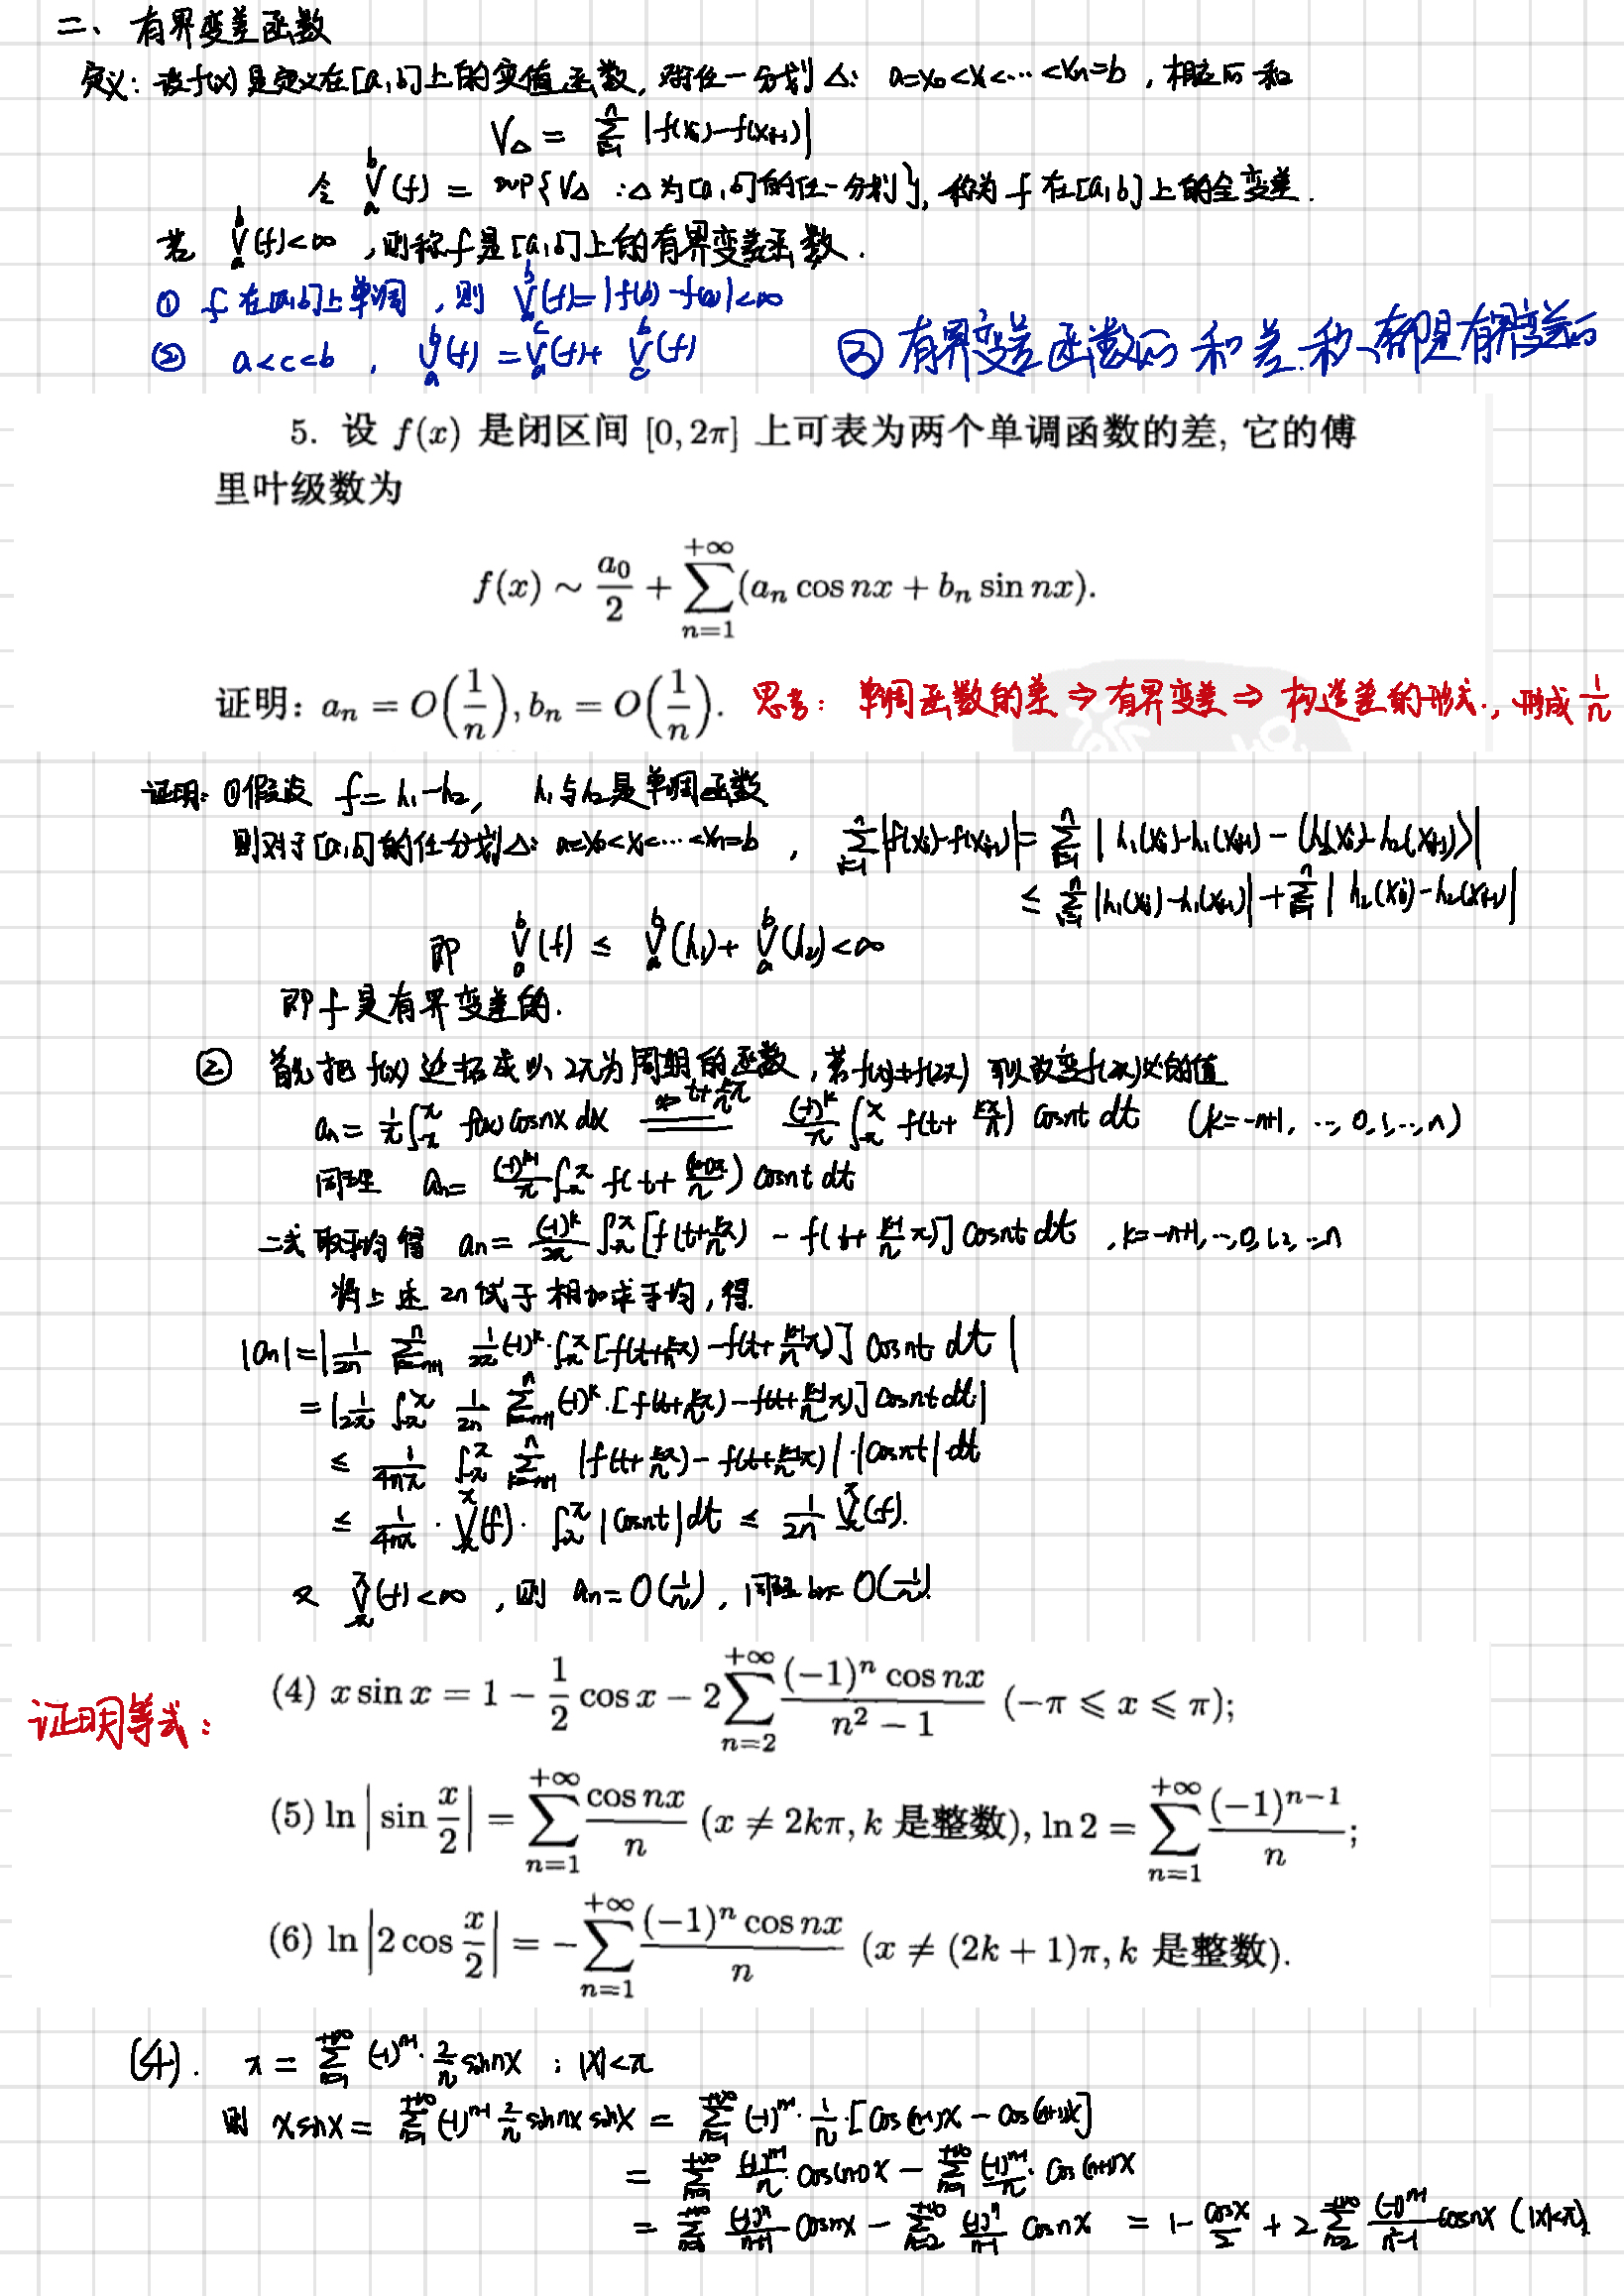 二、有界变差函数
定义：设f(x)是定义在[a,b]上的实值函数，对任一分划 Δ: a=x₀<x₁<⋯<xₙ=b，相应的和
V_Δ = Σ_{i=1}^{n} |f(x_i)-f(x_{i-1})|
令 V_a^b(f) = sup{V_Δ : Δ为[a,b]的任一分划}，称为 f 在[a,b]上的全变差.
若 V_a^b(f)<∞，则称f是[a,b]上的有界变差函数.
① f 在[a,b]上单调，则 V_a^b(f)=|f(b)-f(a)|<∞
② a<c<b， V_a^b(f) = V_a^c(f)+ V_c^b(f) ③ 有界变差函数的和.差.积、都是有界变差的
5. 设 f(x) 是闭区间 [0, 2π] 上可表为两个单调函数的差, 它的傅
里叶级数为
f(x) ∼ a₀/2 + Σ_{n=1}^{+∞}(aₙ cos nx + bₙ sin nx).
证明: aₙ = O(1/n), bₙ = O(1/n). 思考：单调函数的差⇒有界变差⇒构造差的形式.，形成 1/n
证明：①假设 f=h₁-h₂， h₁与h₂是单调函数
则对于[a,b]的任分划Δ: a=x₀<x₁<⋯<xₙ=b， Σ_{i=1}^{n}|f(x_i)-f(x_{i-1})| = Σ_{i=1}^{n}|h₁(x_i)-h₁(x_{i-1}) - (h₂(x_i)-h₂(x_{i-1}))|
≤ Σ_{i=1}^{n}|h₁(x_i)-h₁(x_{i-1})| + Σ_{i=1}^{n}|h₂(x_i)-h₂(x_{i-1})|
即 V_a^b(f) ≤ V_a^b(h₁)+ V_a^b(h₂)<∞
即 f 是有界变差的.
② 首先把 f(x) 延拓成以 2π为周期的函数，若f(0)≠f(2π) 可以改变f(2π)处的值
aₙ = 1/π ∫_{-π}^{π} f(x)cosnx dx =(x=t+kπ/n)= (-1)^k/π ∫_{-π}^{π} f(t+kπ/n) cosnt dt (k=-n+1, ⋯, 0,1,⋯,n)
同理 aₙ= (-1)^{k-1}/π ∫_{-π}^{π} f(t+(k-1)π/n) cosnt dt
二式取平均得 aₙ= (-1)^k/2π ∫_{-π}^{π} [f(t+kπ/n) - f(t+(k-1)/n π)] cosnt dt ，k=-n+1,⋯,0,1,2,⋯n
将上述 2n 个式子相加求平均，得
|aₙ| = |1/2n Σ_{k=-n+1}^{n} 1/2π (-1)^k · ∫_{-π}^{π}[f(t+kπ/n)-f(t+(k-1)/n π)] cosnt dt|
= |1/2π ∫_{-π}^{π} 1/2n Σ_{k=-n+1}^{n} (-1)^k·[f(t+kπ/n)-f(t+(k-1)/n π)] cosnt dt|
≤ 1/4nπ ∫_{-π}^{π} Σ_{k=-n+1}^{n} |f(t+kπ/n)-f(t+(k-1)/n π)|·|cosnt| dt
≤ 1/4nπ · V_{-π}^{π}(f) · ∫_{-π}^{π} |cosnt| dt ≤ 1/2n V_{-π}^{π}(f).
又 V_{-π}^{π}(f)<∞，则 aₙ=O(1/n)，同理 bₙ=O(1/n).
证明等式：
(4) x sin x = 1 − 1/2 cos x − 2 Σ_{n=2}^{+∞} (−1)ⁿ cos nx/(n² − 1) (−π ⩽ x ⩽ π);
(5) ln|sin x/2| = Σ_{n=1}^{+∞} cos nx/n (x ≠ 2kπ, k 是整数), ln 2 = Σ_{n=1}^{+∞} (−1)^{n−1}/n;
(6) ln|2 cos x/2| = −Σ_{n=1}^{+∞} (−1)ⁿ cos nx/n (x ≠ (2k + 1)π, k 是整数).
(4). x = Σ_{n=1}^{+∞} (-1)^{n-1}·2/n sinnx ；|x|<π
则 xsinx = Σ_{n=1}^{+∞} (-1)^{n-1} 2/n sinnx sinx = Σ_{n=1}^{+∞} (-1)^{n-1}·1/n·[cos(n-1)x - cos(n+1)x]
= Σ_{n=1}^{+∞} (-1)^{n-1}/n · cos(n-1)x - Σ_{n=1}^{+∞} (-1)^{n-1}/n · cos(n+1)x
= Σ_{n=0}^{+∞} (-1)^n/(n+1) cosnx - Σ_{n=2}^{+∞} (-1)^n/(n-1) cosnx = 1- cosx/2 + 2 Σ_{n=2}^{+∞} (-1)^{n-1}/(n²-1) cosnx (|x|<π)